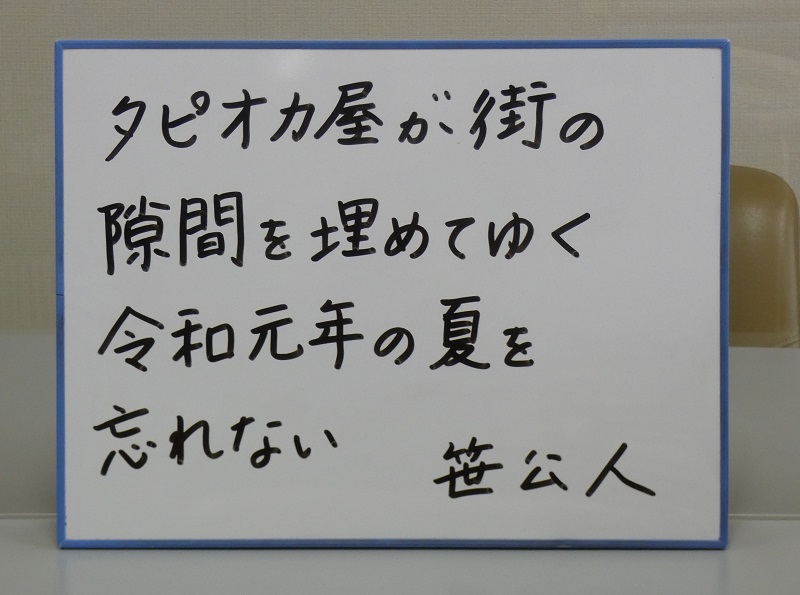 タピオカ屋が街の
隙間を埋めてゆく
令和元年の夏を
忘れない 笹公人